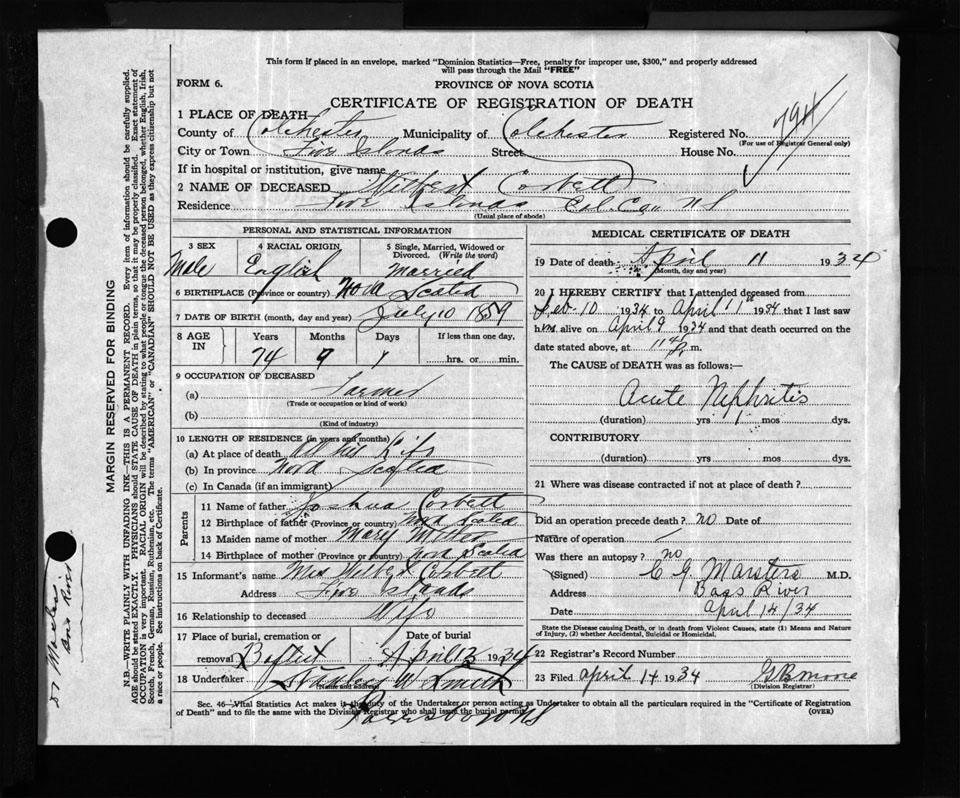 This form if placed in an envelope, marked "Dominion Statistics—Free, penalty for improper use, $300," and properly addressed
will pass through the Mail "FREE"
FORM 6.
PROVINCE OF NOVA SCOTIA
CERTIFICATE OF REGISTRATION OF DEATH
1 PLACE OF DEATH
County of Colchester Municipality of Colchester Registered No. 794
(For use of Registrar General only)
City or Town Five Islands Street House No.
If in hospital or institution, give name
2 NAME OF DECEASED Wilbert Corbett
Residence Five Islands Col. Co. NS
(Usual place of abode)
PERSONAL AND STATISTICAL INFORMATION
3 SEX 4 RACIAL ORIGIN 5 Single, Married, Widowed or
Divorced. (Write the word)
Male English Married
6 BIRTHPLACE (Province or country) Nova Scotia
7 DATE OF BIRTH (month, day and year) July 10 1859
8 AGE IN Years Months Days If less than one day,
74 9 1 hrs. or min.
9 OCCUPATION OF DECEASED
(a) Farmer
(Trade or occupation or kind of work)
(b)
(Kind of industry)
10 LENGTH OF RESIDENCE (in years and months)
(a) At place of death All his Life
(b) In province Nova Scotia
(c) In Canada (if an immigrant)
Parents
11 Name of father Joshua Corbett
12 Birthplace of father (Province or country) Nova Scotia
13 Maiden name of mother Mary
14 Birthplace of mother (Province or country) Nova Scotia
15 Informant's name Mrs Wilbert Corbett
Address Five Islands
16 Relationship to deceased Wife
17 Place of burial, cremation or Date of burial
removal Baptist April 13 1934
18 Undertaker Stanley W Smith
(Name and address)
Parrsboro NS
MEDICAL CERTIFICATE OF DEATH
19 Date of death April 11 1934
(Month, day and year)
20 I HEREBY CERTIFY that I attended deceased from
Feb-10 1934 to April 11 1934 that I last saw
him alive on April 9 1934 and that death occurred on the
date stated above, at 11 P. m.
The CAUSE of DEATH was as follows:—
Acute Nephritis
(duration) yrs 1 mos dys.
CONTRIBUTORY
(duration) yrs mos dys.
21 Where was disease contracted if not at place of death?
Did an operation precede death? no Date of
Nature of operation
Was there an autopsy? no
(Signed) C G Marsters M.D.
Address Bass River
Date April 14/34
State the Disease causing Death, or in death from Violent Causes, state (1) Means and
Nature of Injury, (2) whether Accidental, Suicidal or Homicidal.
22 Registrar's Record Number
23 Filed April 14 1934 G B Moore
(Division Registrar)
Sec. 46—Vital Statistics Act makes it the duty of the Undertaker or person acting as Undertaker to obtain all the particulars required in the "Certificate of Registration
of Death" and to file the same with the Division Registrar who shall issue the burial permit.
(OVER)
MARGIN RESERVED FOR BINDING
N.B.—WRITE PLAINLY WITH UNFADING INK—THIS IS A PERMANENT RECORD. Every item of information should be carefully supplied.
AGE should be stated EXACTLY. PHYSICIANS should STATE CAUSE OF DEATH in plain terms, so that it may be properly classified. Exact statement of
OCCUPATION is very important. RACIAL ORIGIN will be described by stating to what people or tongue the deceased person belonged, whether English, Irish,
Scotch, French, German, Russian, Ruthenian, etc. The terms "AMERICAN" or "CANADIAN" SHOULD NOT BE USED as they express citizenship but not
a race or people. See instructions on back of Certificate.